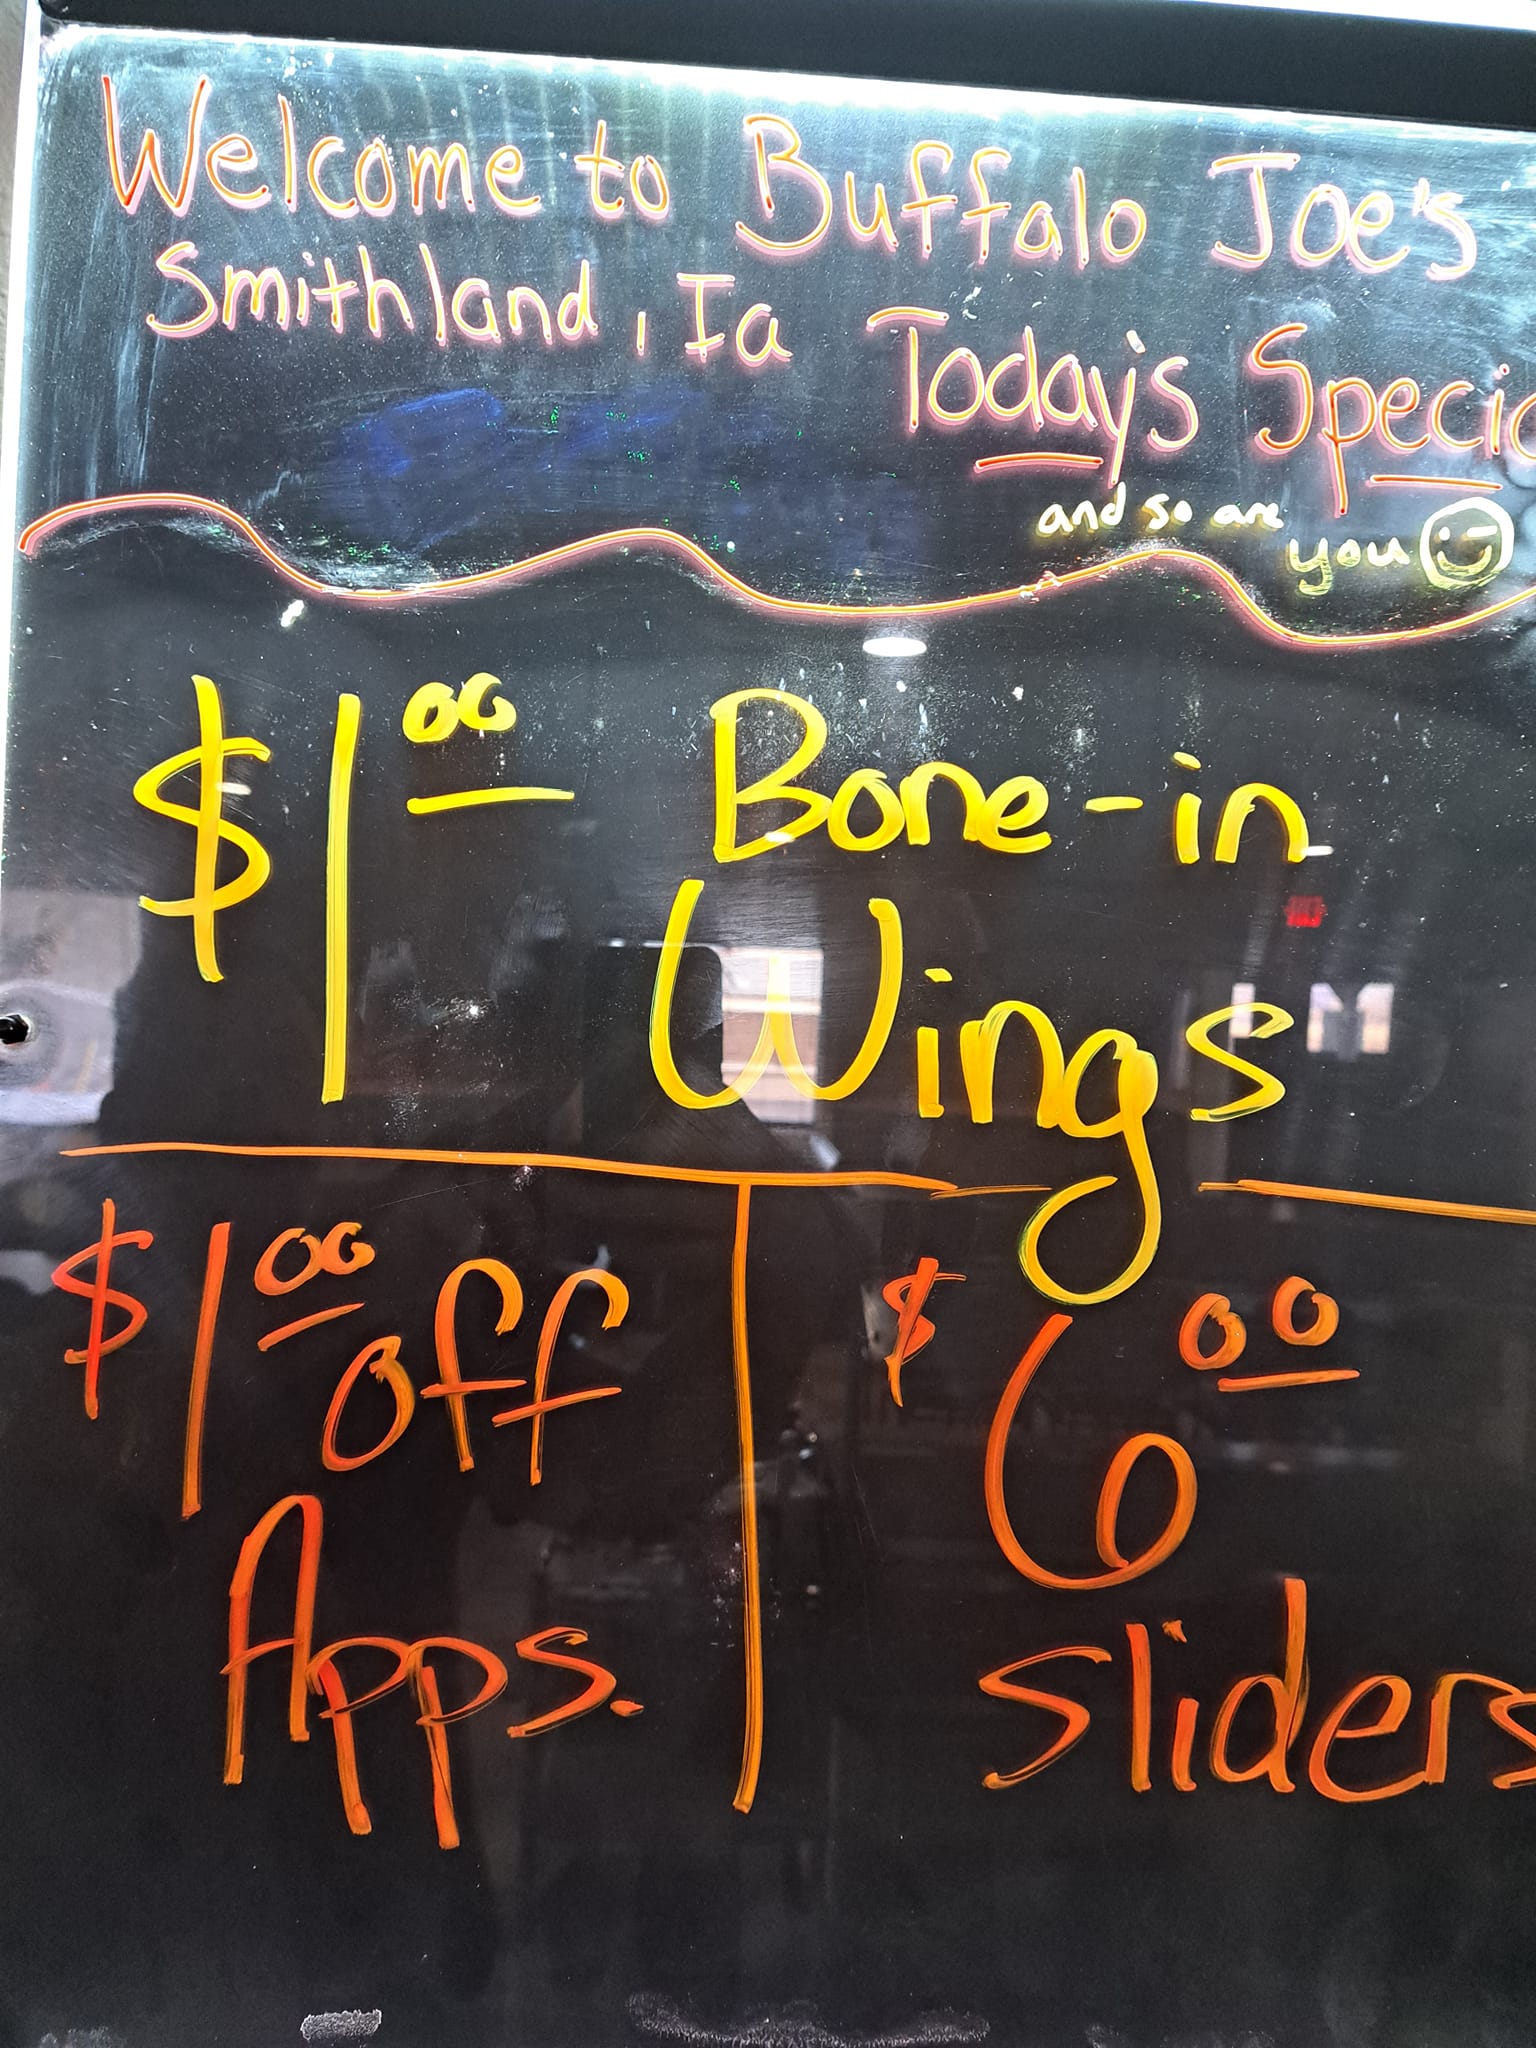 Welcome to Buffalo Joe's
Smithland, Ia
Today's Specia
and so are
you
$1.00 Bone-in
Wings
$1.00 off
Apps.
$6.00
sliders